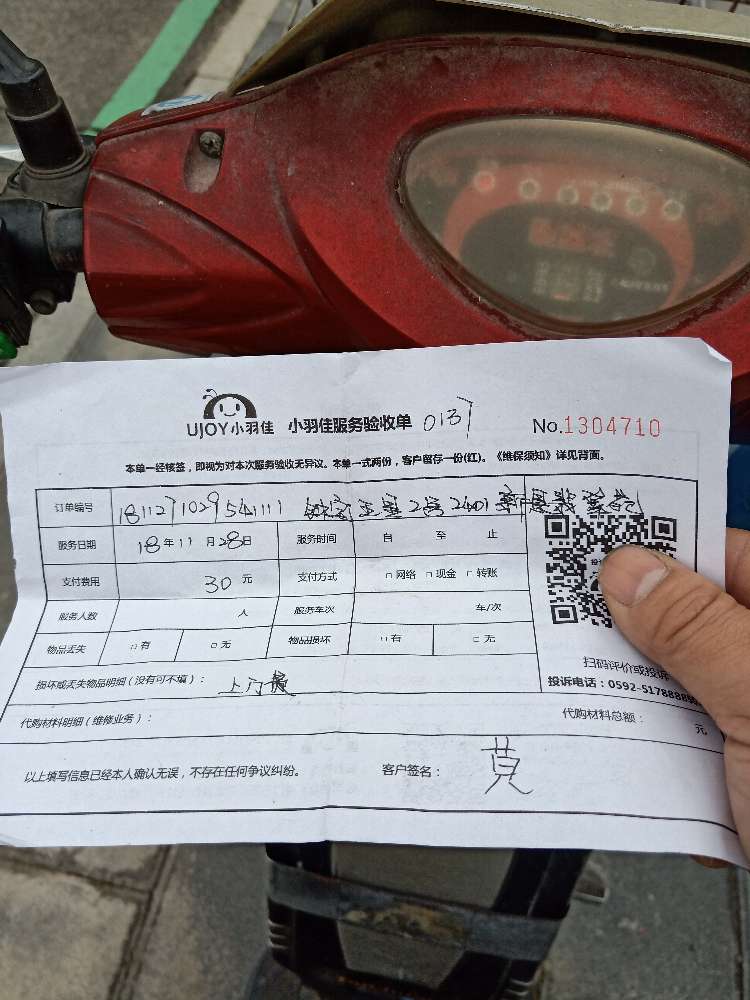 UJOY小羽佳 小羽佳服务验收单 0137 No.1304710
本单一经核签，即视为对本次服务验收无异议。本单一式两份，客户留存一份(红)。《维保须知》详见背面。
订单编号 181127102954111 2401
服务日期 18年11月28日 服务时间 自 至 止
支付费用 30元 支付方式 □网络 □现金 □转账
服务人数 人 服务车次 车/次
物品丢失 □有 □无 物品损坏 □有 □无
扫码评价或投诉
投诉电话：0592-517888
损坏或丢失物品明细（没有可不填）： 上门费
代购材料明细（维修业务）： 代购材料总额： 元
以上填写信息已经本人确认无误，不存在任何争议纠纷。 客户签名：